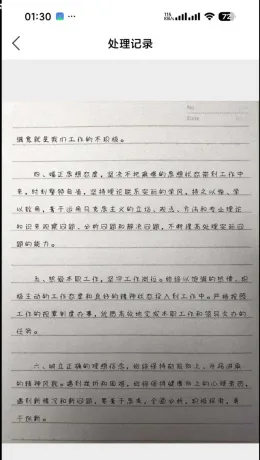 01:30
72
处理记录
No
Date
满意就是我们工作的不积极。
四、端正思想态度，坚决不把麻痹的思想状态带到工作中
来，时刻警惕自省，坚持理论联系实际的学风，持之以恒、学
以致用，善于运用马克思主义的立场、观点、方法和专业理论
知识来观察问题、分析问题和解决问题，不断提高处理实际问
题的能力。
五、热爱本职工作，坚守工作岗位。始终以饱满的热情、积
极主动的工作态度和良好的精神状态投入到工作中。严格按照
工作的规章制度办事，优质高效地完成本职工作和领导交办的
任务。
六、树立正确的理想信念，始终保持积极向上、开拓进取
的精神风貌。遇到挫折和困难，始终保持健康向上的心理素质，
遇到新情况和新问题，要善于思考，全面分析，积极探索，勇
于创新。